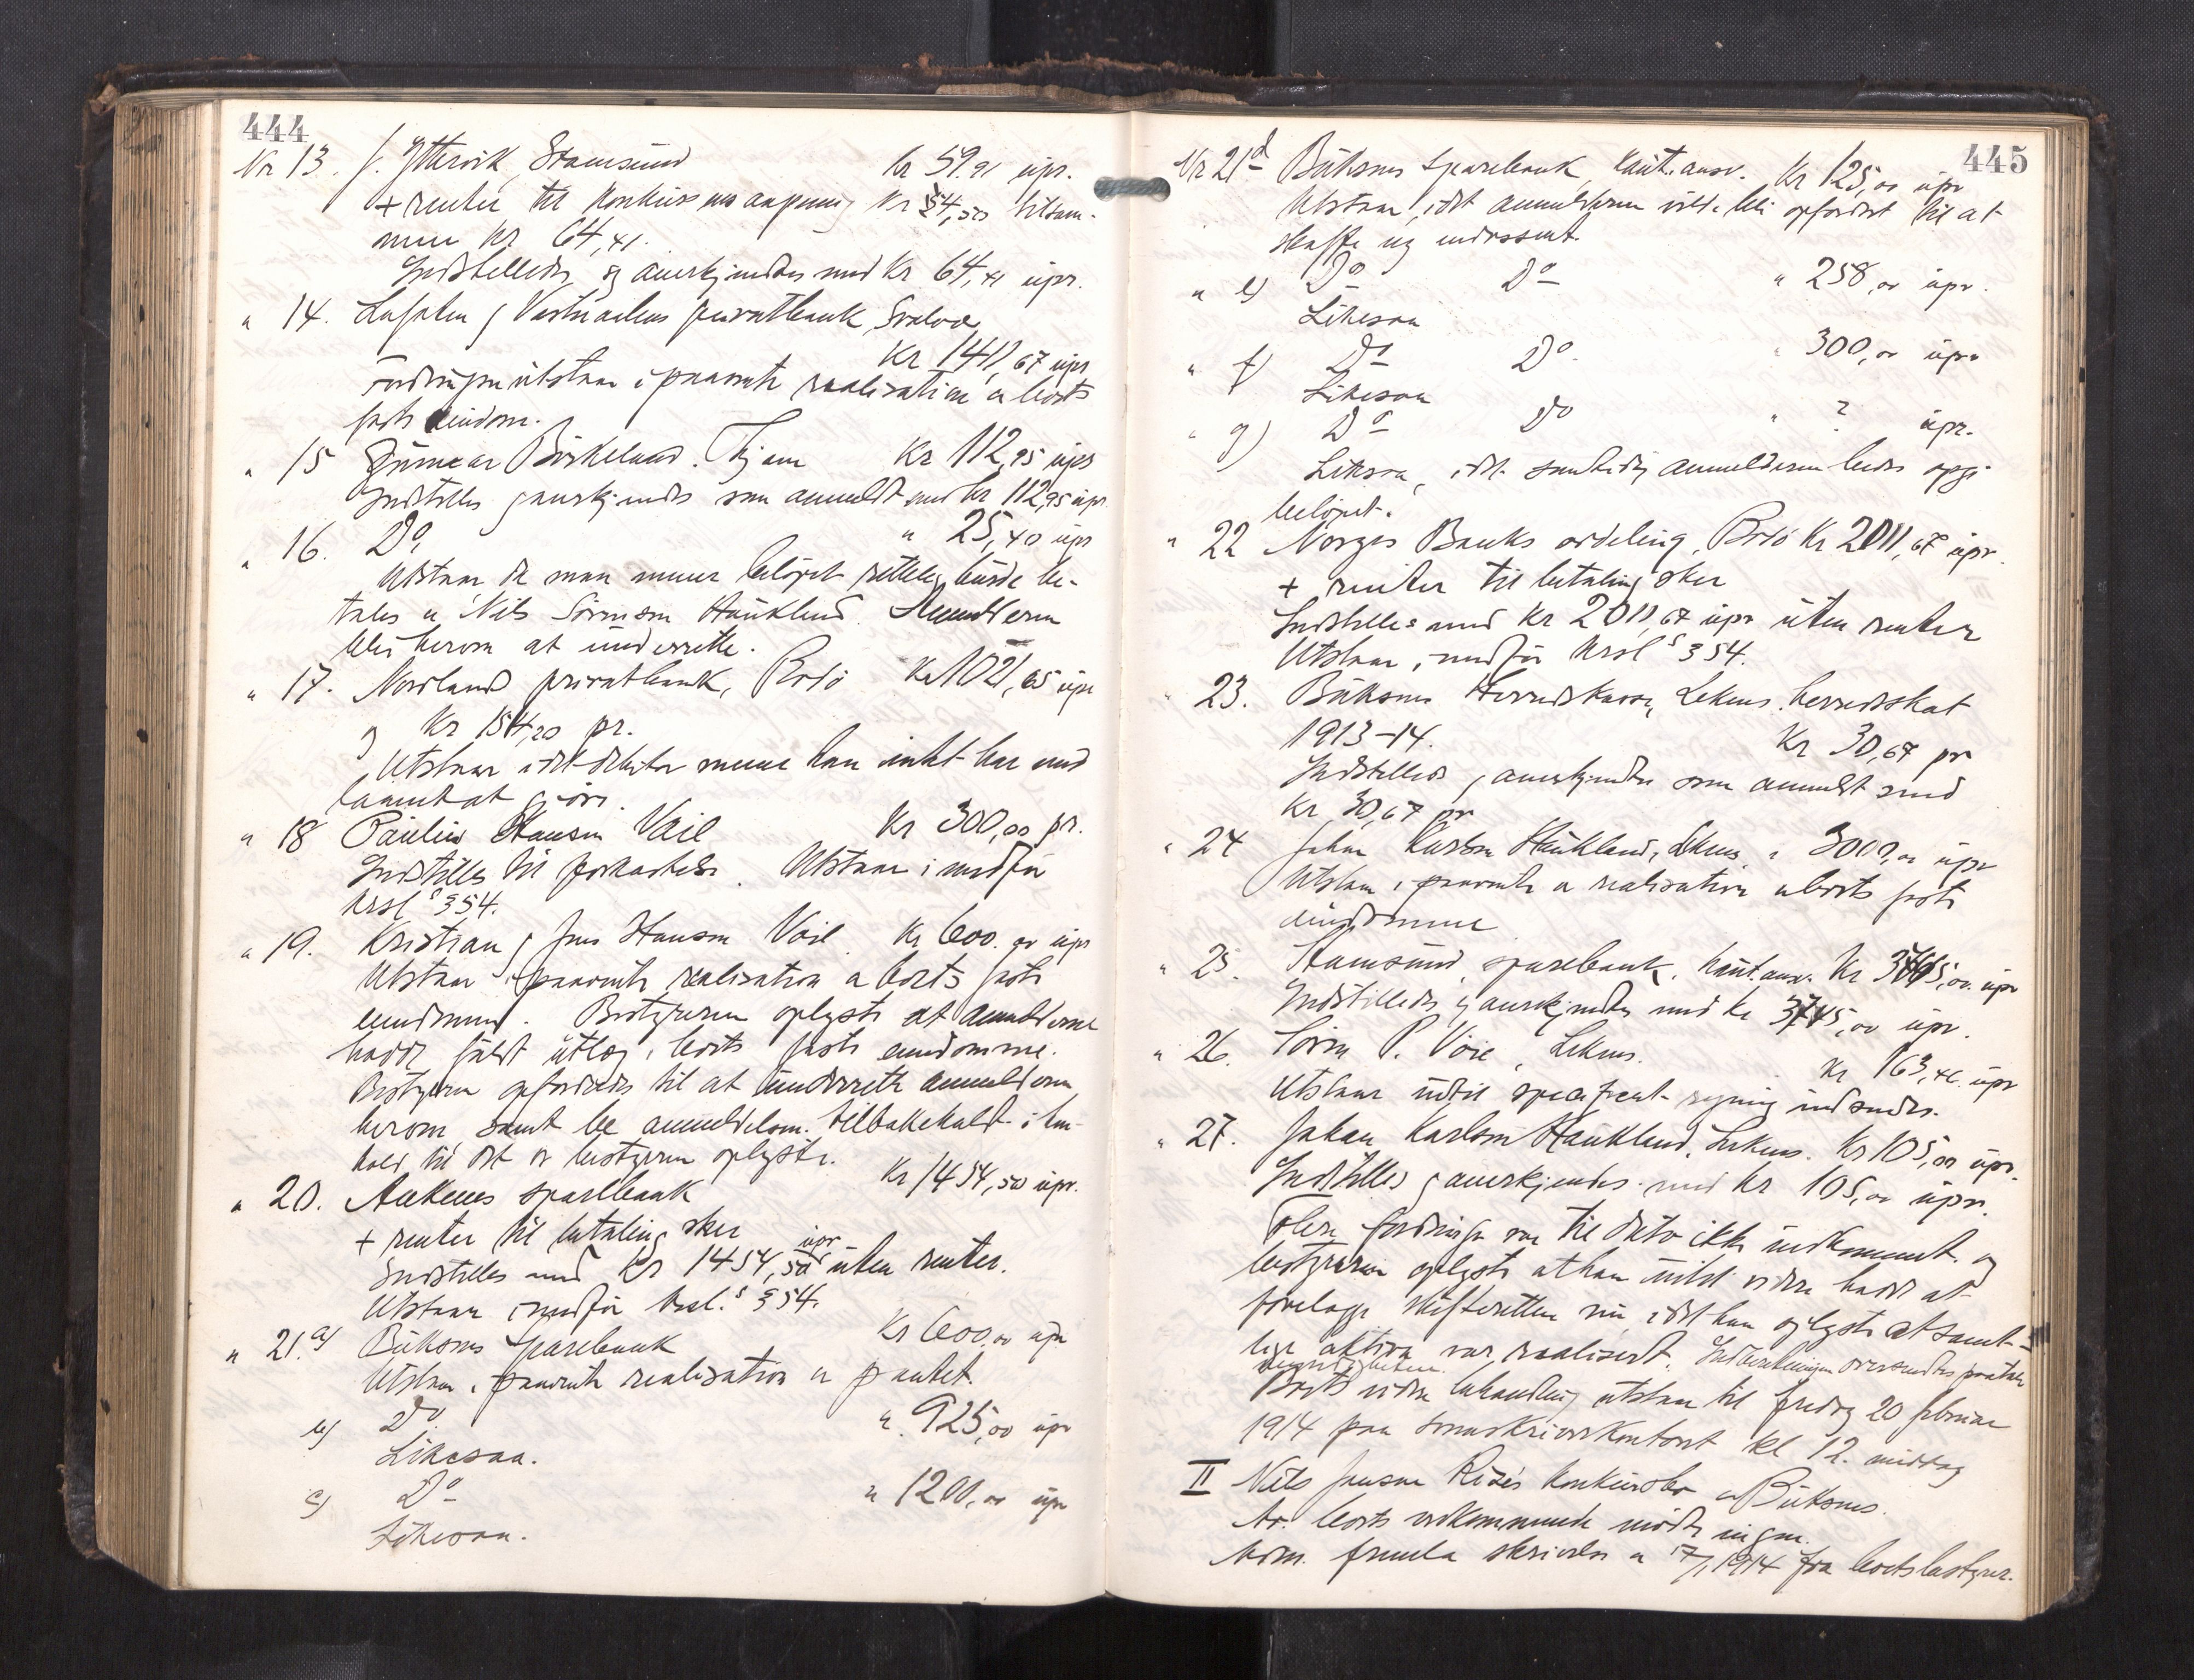 444
Nr 13. J. Yttervik, Stamsund Kr 59,91 upr.
+ renter til konkursens aapning Kr 4,50 tilsam-
men Kr 64,41.
Indstilledes og anerkjendtes med Kr 64,41 upr.
" 14. Lofoten & Vesteraalens privatbank, Svolvær
Kr 1411,67 upr
Fordringen utstaar i paavente realisation av boets
faste eiendom.
" 15 Gunnar Birkeland. Kr 112,95 upr
Indstilles & anerkjendes som anmeldt med kr 112,95 upr.
" 16. Do, " 25,40 upr
Utstaar da man mener beløpet rettelig burde be-
tales av Nils Sørensen Haukland. Anmelderen
blir herom at underrette.
" 17. Nordlands privatbank, Bodø Kr 1021,65 upr
og Kr 154,20 pr.
Utstaar idet debitor mener han intet har med
kravet at gjøre.
" 18 Pauline Hansen Voie Kr 300,00 pr.
Indstilles til forkastelse. Utstaar i medfør
krsl.s § 54.
" 19. Kristian & Jens Hansen Voie Kr 600.00 upr
Utstaar i paavente realisation av boets faste
eiendomme. Bostyreren oplyste at anmelderne
hadde faat utlæg i boets faste eiendomme.
Bostyreren opfordredes til at underrette anmelderne
herom samt be anmeldelsen tilbakekaldt i hen-
hold til det av bostyreren oplyste.
" 20. Aukens sparebank Kr 1454,50 upr.
+ renter til betaling sker
Indstilles med Kr 1454,50 upr uten renter.
Utstaar i medfør krsl.s § 54.
" 21.a) Buksnes Sparebank Kr 600.00 upr
Utstaar i paavente realisation av pantet.
b) Do. " 925,00 upr
Likesaa.
c) Do " 1200,00 upr
Likesaa.
445
Nr 21d Buksnes Sparebank, kaut.ansv. Kr 125,00 upr
Utstaar, idet anmelderen vilde bli opfordret til at
skaffe ny endossent.
" e) Do Do " 258,00 upr.
Likesaa
" f) Do Do. " 300,00 upr
Likesaa
" g) Do Do " ? upr.
Likesaa, idet samtidig anmelderen bedes opgi
beløpet.
" 22 Norges Banks avdeling, Bodø Kr 2011,67 upr.
+ renter til betaling sker
Indstilles med Kr 2011,67 upr uten renter
Utstaar i medfør krsl.s § 54.
" 23. Buksnes Herredskasse, Leknes, herredsskat
1913-14. Kr 30,67 pr
Indstilledes & anerkjendtes som anmeldt med
Kr 30,67 pr
" 24 Johan Karlsen Haukland, Leknes " 3000,00 upr
Utstaar i paavente av realisation av boets faste
eiendomme
" 25. Stamsund sparebank. kaut.ansv. Kr 3745,00 upr
Indstilledes og anerkjendtes med Kr 3745,00 upr.
" 26. Sören P. Voie, Leknes. Kr 163,46 upr
Utstaar indtil specificert regning indsendes.
" 27. Johan Karlsen Haukland, Leknes. Kr 105,00 upr.
Indstilles & anerkjendes med Kr 105,00 upr.
Flere fordringer var til dato ikke indkommet og
bostyreren oplyste at han intet videre hadde at
forelægge skifteretten nu, idet han oplyste at samt-
lige aktiva var realisert. Indberetningen oversendtes paatale
myndigheten.
Boets videre behandling utstaar til fredag 20 februar
1914 paa sorenskriverkontoret kl 12. middag
II Nils Jensen Risés konkursbo av Buksnes.
Av boets vedkommende mødte ingen.
Adm. fremla skrivelse av 17/1 1914 fra boets bestyrer.